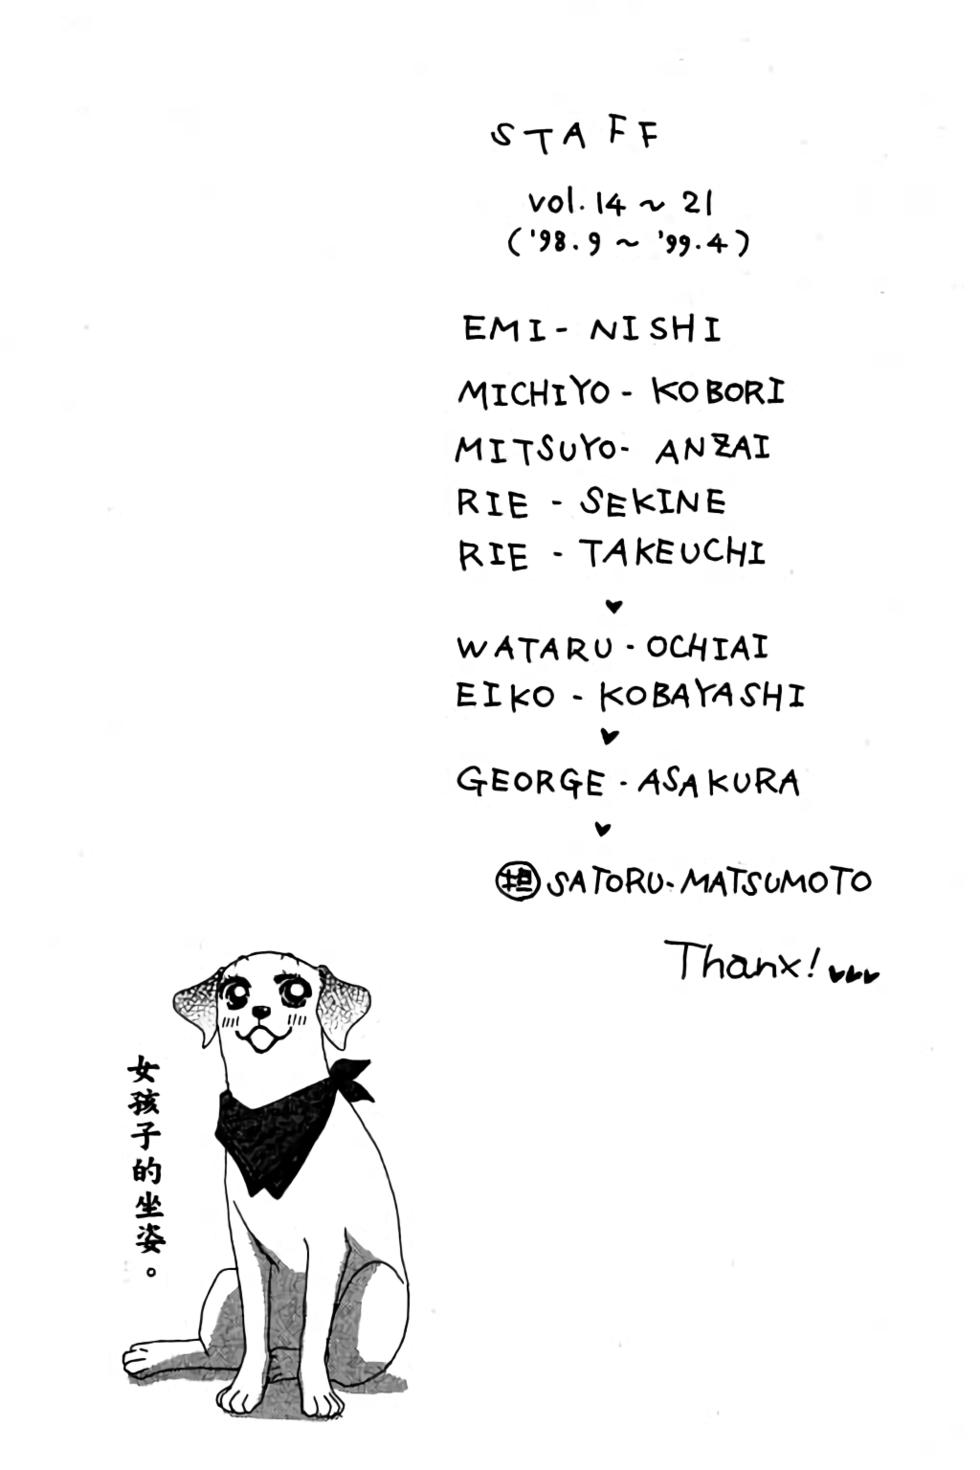 STAFF
vol. 14 ~ 21
('98.9 ~ '99.4)
EMI - NISHI
MICHIYO - KOBORI
MITSUYO - ANZAI
RIE - SEKINE
RIE - TAKEUCHI
♥
WATARU - OCHIAI
EIKO - KOBAYASHI
♥
GEORGE - ASAKURA
♥
担 SATORU - MATSUMOTO
Thanx! ♥♥♥
女孩子的坐姿。